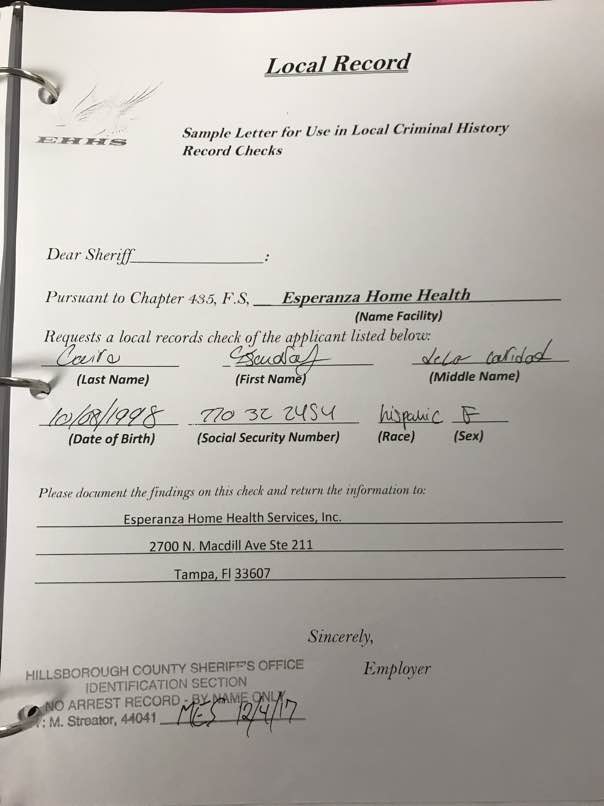 Local Record
EHHS
Sample Letter for Use in Local Criminal History
Record Checks
Dear Sheriff____________:
Pursuant to Chapter 435, F.S, Esperanza Home Health
(Name Facility)
Requests a local records check of the applicant listed below:
dela caridad
(Last Name) (First Name) (Middle Name)
10/08/1998 770 32 2454 hispanic F
(Date of Birth) (Social Security Number) (Race) (Sex)
Please document the findings on this check and return the information to:
Esperanza Home Health Services, Inc.
2700 N. Macdill Ave Ste 211
Tampa, Fl 33607
Sincerely,
Employer
HILLSBOROUGH COUNTY SHERIFF'S OFFICE
IDENTIFICATION SECTION
NO ARREST RECORD - BY NAME ONLY
: M. Streator, 44041 MES 12/4/17